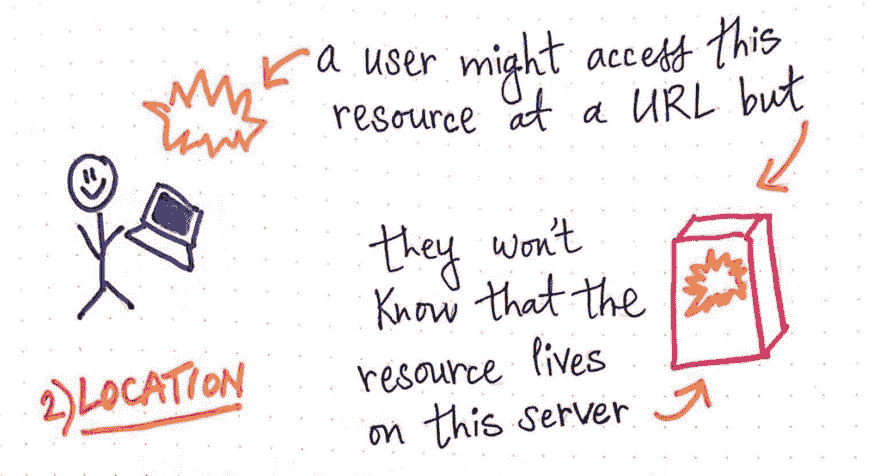 a user might access this
resource at a URL but
they won't
know that the
resource lives
on this server
2) LOCATION